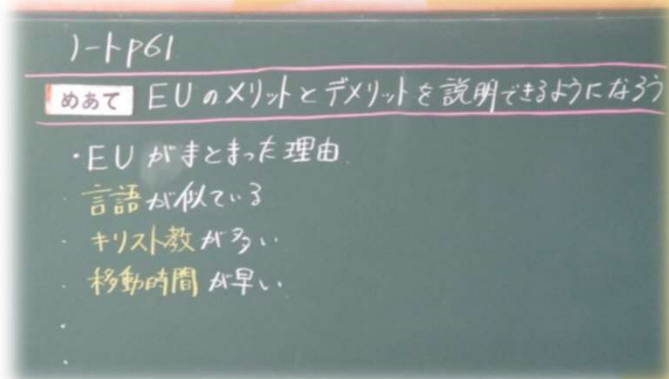 ノートp61
めあて EUのメリットとデメリットを説明できるようになろう
・EUがまとまった理由
・言語が似ている
・キリスト教が多い
・移動時間が早い
・
・